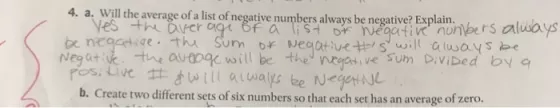 4. a. Will the average of a list of negative numbers always be negative? Explain.
Yes the average of a list of negative nonbers always
be negative. the sum of Negative #'s' will always be
Negative. the average will be the negative sum Divided by a
positive # & will always be Negative
b. Create two different sets of six numbers so that each set has an average of zero.